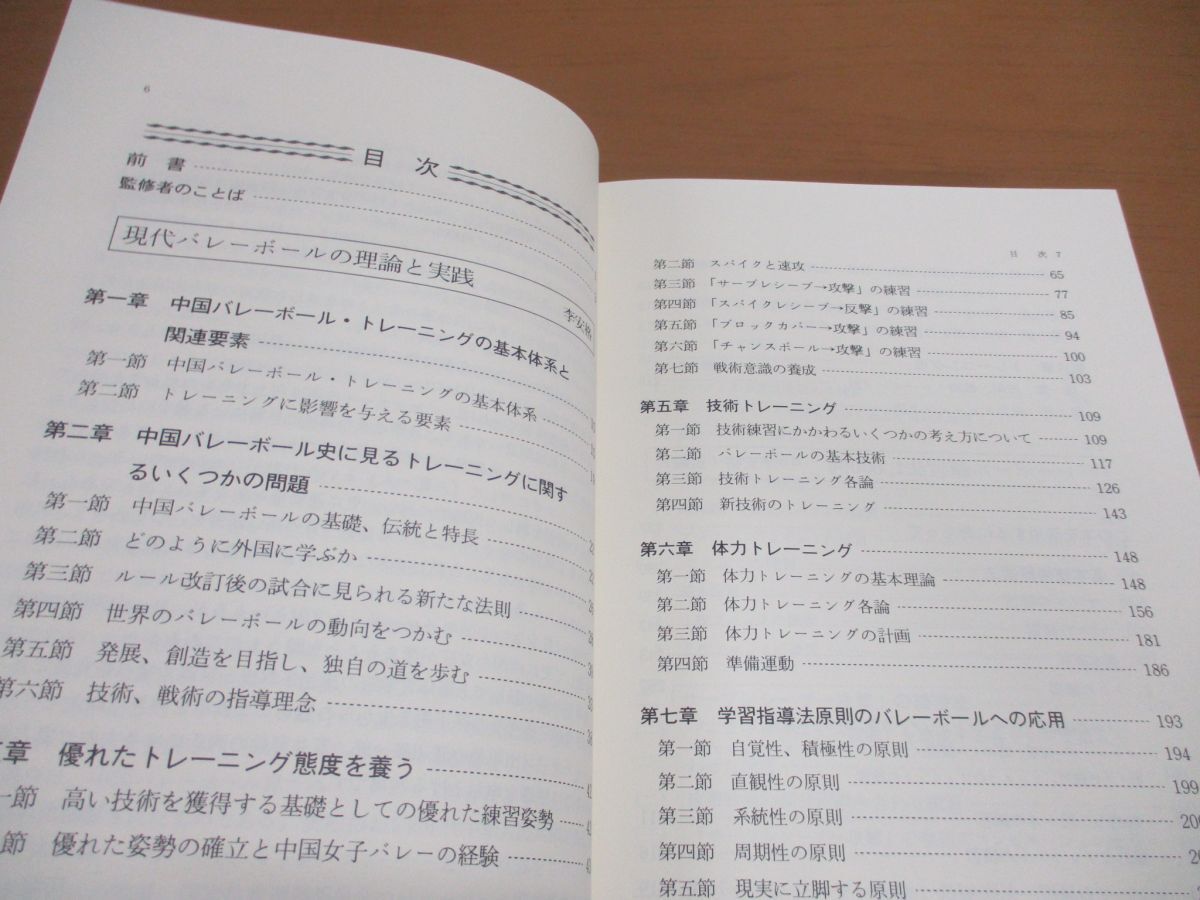 6
目 次
前 書
監修者のことば
現代バレーボールの理論と実践
李安格
第一章 中国バレーボール・トレーニングの基本体系と
関連要素
第一節 中国バレーボール・トレーニングの基本体系
第二節 トレーニングに影響を与える要素
第二章 中国バレーボール史に見るトレーニングに関す
るいくつかの問題
第一節 中国バレーボールの基礎、伝統と特長
第二節 どのように外国に学ぶか
第三節 ルール改訂後の試合に見られる新たな法則
第四節 世界のバレーボールの動向をつかむ
第五節 発展、創造を目指し、独自の道を歩む
第六節 技術、戦術の指導理念
章 優れたトレーニング態度を養う
一節 高い技術を獲得する基礎としての優れた練習姿勢
節 優れた姿勢の確立と中国女子バレーの経験
目 次 7
第二節 スパイクと速攻 65
第三節 「サーブレシーブ→攻撃」の練習 77
第四節 「スパイクレシーブ→反撃」の練習 85
第五節 「ブロックカバー→攻撃」の練習 94
第六節 「チャンスボール→攻撃」の練習 100
第七節 戦術意識の養成 103
第五章 技術トレーニング 109
第一節 技術練習にかかわるいくつかの考え方について 109
第二節 バレーボールの基本技術 117
第三節 技術トレーニング各論 126
第四節 新技術のトレーニング 143
第六章 体力トレーニング 148
第一節 体力トレーニングの基本理論 148
第二節 体力トレーニング各論 156
第三節 体力トレーニングの計画 181
第四節 準備運動 186
第七章 学習指導法原則のバレーボールへの応用 193
第一節 自覚性、積極性の原則 194
第二節 直観性の原則 199
第三節 系統性の原則
第四節 周期性の原則
第五節 現実に立脚する原則